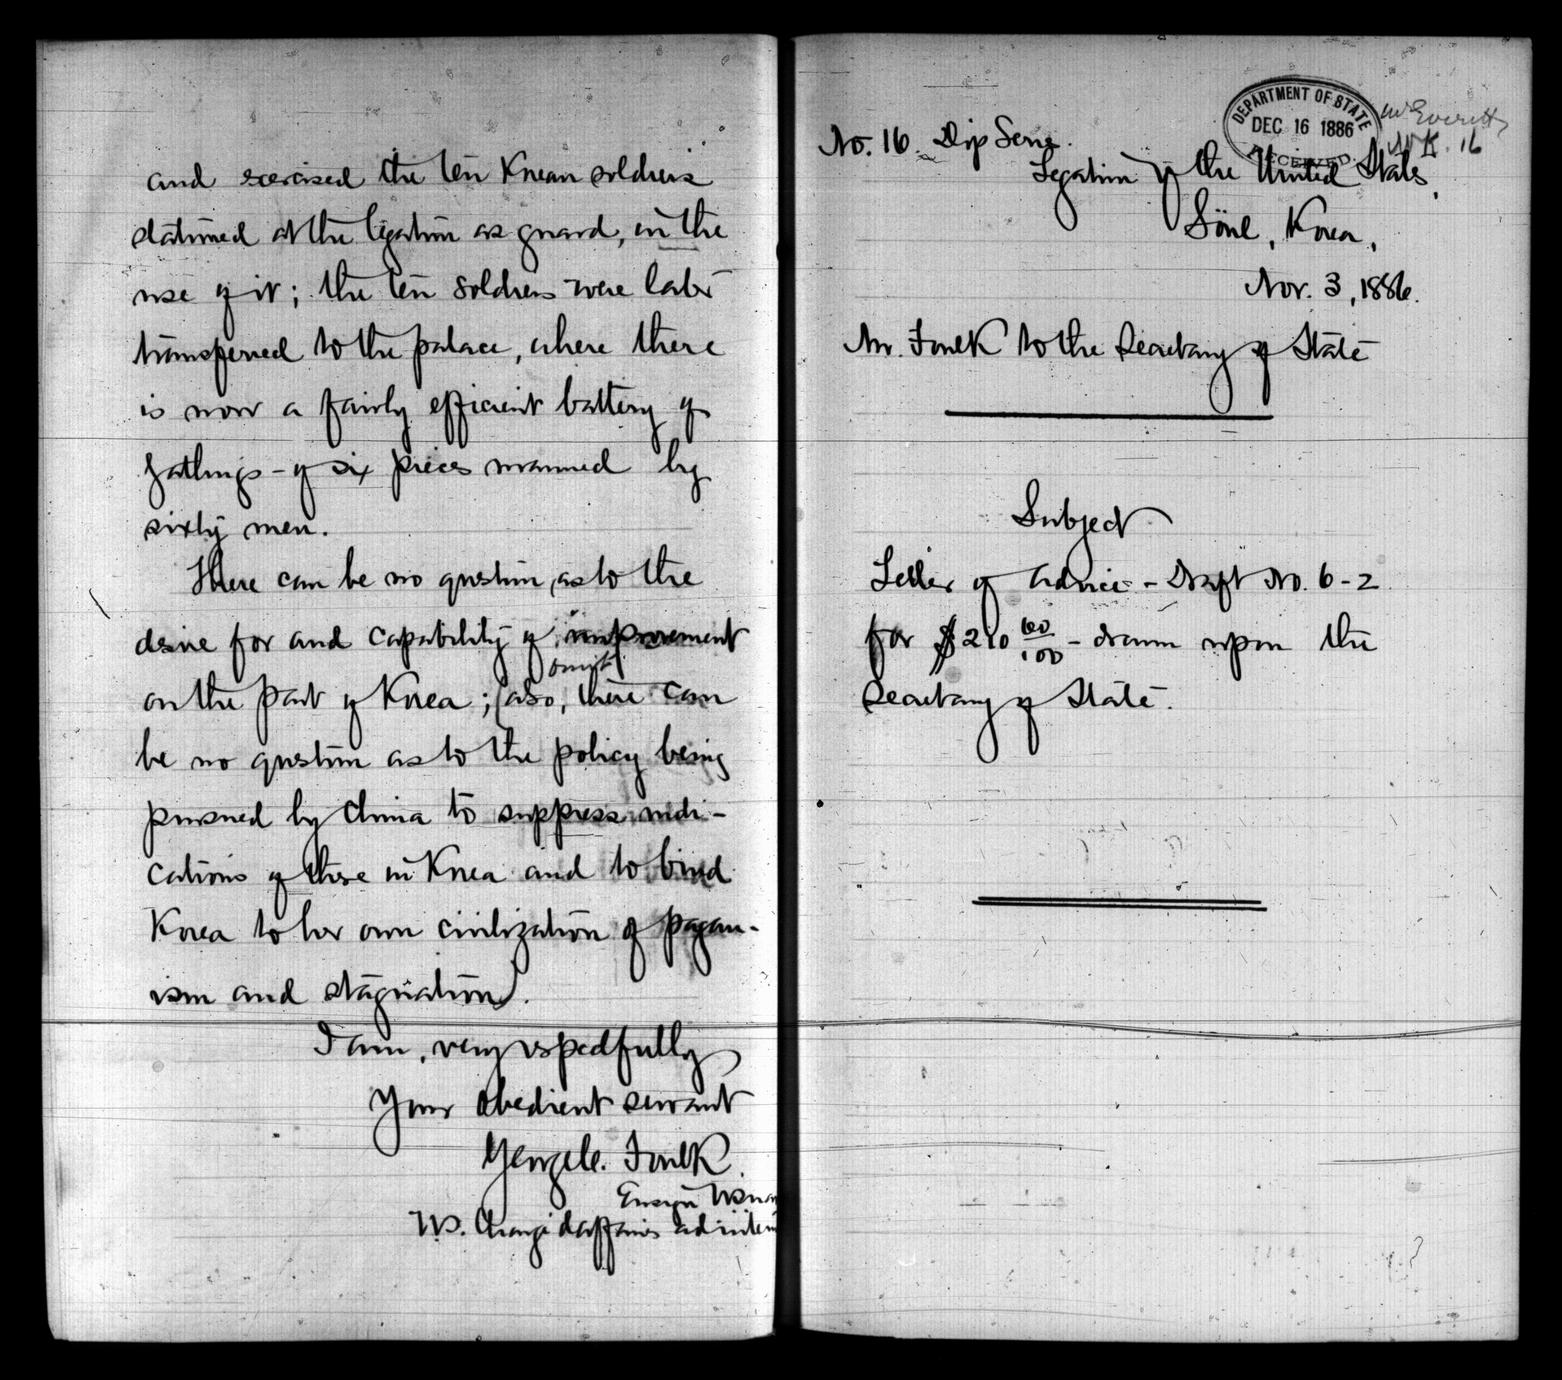 and exercised the ten Korean soldiers
stationed at the legation as guard, in the
use of it; the ten soldiers were later
transferred to the palace, where there
is now a fairly efficient battery of
gatlings - of six pieces manned by
sixty men.
There can be no question as to the
desire for and capability of improvement
omit
on the part of Korea; (also, there can
be no question as to the policy being
pursued by China to suppress indi-
cations of these in Korea and to bind
Korea to her own civilization of pagan-
ism and stagnation).
I am, very respectfully
Your obedient servant
George C. Foulk
Ensign U.S. Navy
U.S. Chargé d'affaires ad interim
DEPARTMENT OF STATE
DEC 16 1886
RECEIVED
Mr Everett
16
No. 16 Dip Series.
Legation of the United States,
Söul, Korea,
Nov. 3, 1886.
Mr. Foulk to the Secretary of State
Subject
Letter of Advice - Draft No. 6-2
for $210 60/100 - drawn upon the
Secretary of State.